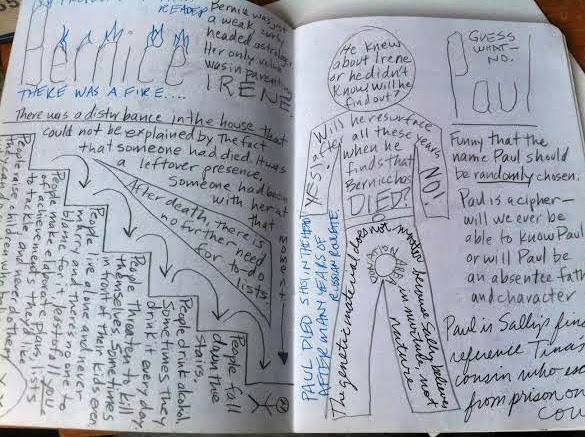 READER
Bernice
Bernice was just
a weak curly
headed astrologer
Her only value
was in parenting
IRENE
THERE WAS A FIRE....
There was a disturbance in the house that
could not be explained by the fact
that someone had died. It was
a leftover presence,
Someone had been
with her at
that
moment
After death, there is
no further need
for to-do
lists
People fall
down the
stairs
People drink alcohol.
Sometimes they
drink it every day
People threaten to kill
themselves, sometimes
in front of their kids even
People live alone and never
marry and there's no one to
blame for it least of all you
People make elaborate plans, lists
of achievements they'd like
to tackle and never do
People raise
children
He knew
about Irene
or he didn't
know will he
find out?
Will he resurface
after all these years
when he
finds that
Bernice has
DIED?
YES!
NO!
DONATION AREA
The genetic material does not matter because Sally believes
in nurture, not
nature
PAUL DIED SHOT IN THE HEAD
AFTER MANY YEARS OF
RUSSIAN ROULETTE.
GUESS
WHAT—
NO.
Paul
Funny that the
name Paul should
be randomly chosen.
Paul is a cipher—
will we ever be
able to know Paul
or will Paul be
an absentee father
and character
Paul is Sally's final
reference Tina's
cousin who esc
from prison on
cou